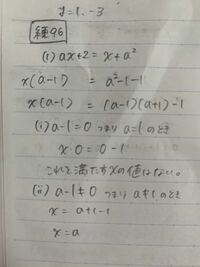 y=1, -3
練96
(1) ax+2=x+a²
x(a-1) = a²-1-1
x(a-1) = (a-1)(a+1)-1
(i) a-1=0 つまり a=1のとき
x·0=0-1
これを満たすxの値はない。
(ii) a-1≠0 つまり a≠1のとき
x = a+1-1
x=a